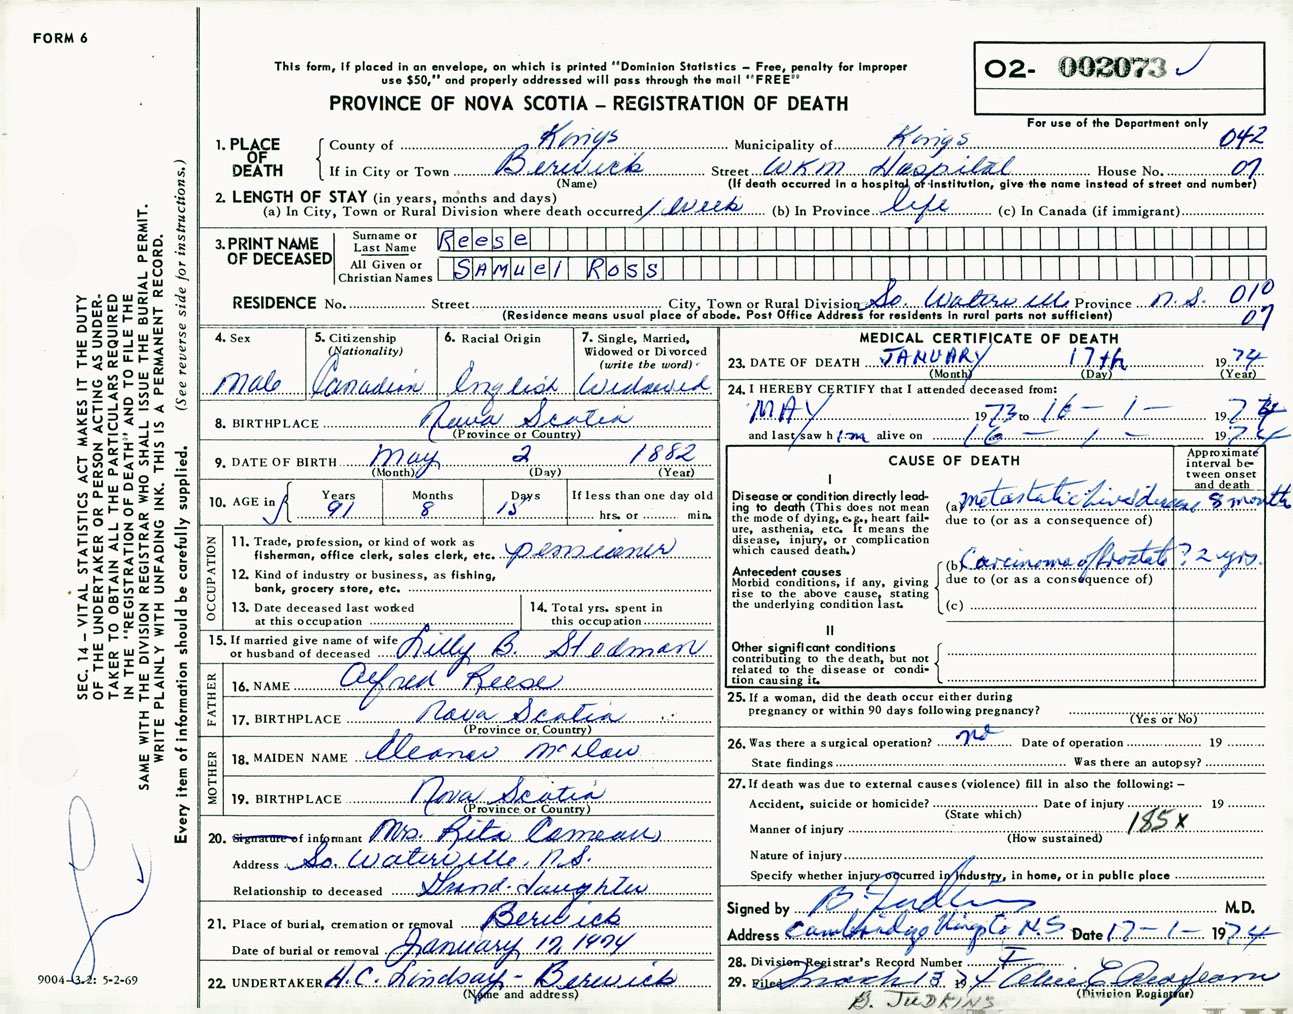 FORM 6
This form, if placed in an envelope, on which is printed "Dominion Statistics – Free, penalty for improper
use $50," and properly addressed will pass through the mail "FREE"
PROVINCE OF NOVA SCOTIA – REGISTRATION OF DEATH
O2- 002073
For use of the Department only
SEC. 14 – VITAL STATISTICS ACT MAKES IT THE DUTY
OF THE UNDERTAKER OR PERSON ACTING AS UNDER-
TAKER TO OBTAIN ALL THE PARTICULARS REQUIRED
IN THE "REGISTRATION OF DEATH" AND TO FILE THE
SAME WITH THE DIVISION REGISTRAR WHO SHALL ISSUE THE BURIAL PERMIT.
WRITE PLAINLY WITH UNFADING INK. THIS IS A PERMANENT RECORD.
Every item of information should be carefully supplied. (See reverse side for instructions.)
1. PLACE OF DEATH
County of Kings Municipality of Kings 042
If in City or Town Berwick Street WKM Hospital House No. 07
(Name) (If death occurred in a hospital of institution, give the name instead of street and number)
2. LENGTH OF STAY (in years, months and days)
(a) In City, Town or Rural Division where death occurred 1 Week (b) In Province life (c) In Canada (if immigrant)
3. PRINT NAME OF DECEASED
Surname or Last Name Reese
All Given or Christian Names SAMuel Ross
RESIDENCE No. Street City, Town or Rural Division So. Waterville Province N.S. 010
(Residence means usual place of abode. Post Office Address for residents in rural parts not sufficient) 07
4. Sex Male
5. Citizenship (Nationality) Canadian
6. Racial Origin English
7. Single, Married, Widowed or Divorced (write the word) Widowed
8. BIRTHPLACE Nova Scotia
(Province or Country)
9. DATE OF BIRTH May 2 1882
(Month) (Day) (Year)
10. AGE in Years 91 Months 8 Days 15 If less than one day old hrs. or min.
OCCUPATION
11. Trade, profession, or kind of work as
fisherman, office clerk, sales clerk, etc. pensioner
12. Kind of industry or business, as fishing,
bank, grocery store, etc.
13. Date deceased last worked at this occupation
14. Total yrs. spent in this occupation
15. If married give name of wife
or husband of deceased Lilly B. Stedman
FATHER
16. NAME Alfred Reese
17. BIRTHPLACE Nova Scotia
(Province or Country)
MOTHER
18. MAIDEN NAME Eleanor
19. BIRTHPLACE Nova Scotia
(Province or Country)
20. Signature of informant Mrs. Rita Comeau
Address So. Waterville, N.S.
Relationship to deceased Grand-daughter
21. Place of burial, cremation or removal Berwick
Date of burial or removal January 1974
22. UNDERTAKER H.C. Lindsay – Berwick
(Name and address)
9004–3.2: 5-2-69
MEDICAL CERTIFICATE OF DEATH
23. DATE OF DEATH JANUARY 17th 1974
(Month) (Day) (Year)
24. I HEREBY CERTIFY that I attended deceased from:
MAY 1973 to 16 – 1 – 1974
and last saw him alive on 16 – 1 – 1974
CAUSE OF DEATH
Approximate interval between onset and death
I
Disease or condition directly lead-
ing to death (This does not mean
the mode of dying, e.g., heart fail-
ure, asthenia, etc. It means the
disease, injury, or complication
which caused death.)
(a) metastatic liver disease 8 months
due to (or as a consequence of)
Antecedent causes
Morbid conditions, if any, giving
rise to the above cause, stating
the underlying condition last.
(b) Carcinoma of Prostate ? 2 yrs.
due to (or as a consequence of)
(c)
II
Other significant conditions
contributing to the death, but not
related to the disease or condi-
tion causing it.
25. If a woman, did the death occur either during
pregnancy or within 90 days following pregnancy?
(Yes or No)
26. Was there a surgical operation? no Date of operation 19
State findings Was there an autopsy?
27. If death was due to external causes (violence) fill in also the following: –
Accident, suicide or homicide? Date of injury 19
(State which)
Manner of injury 185x
(How sustained)
Nature of injury
Specify whether injury occurred in Industry, in home, or in public place
Signed by B. Judkins M.D.
Address Cambridge Kings Co N.S Date 17–1–1974
28. Division Registrar's Record Number
29. Filed March 13 1974
(Division Registrar)
B. JUDKINS